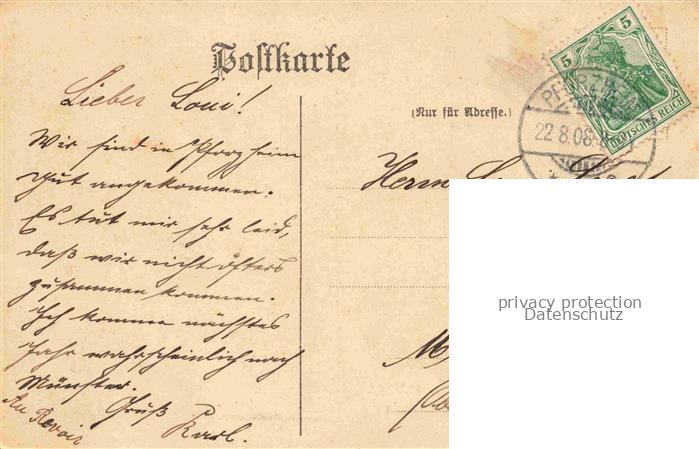 Postkarte
Lieber Loui!
Wir sind in Pforzheim
gut angekommen.
Es tut mir sehr leid,
daß wir nicht öfters
zusammen kommen.
Ich komme nächstes
Jahr wahrscheinlich nach
Münster.
Gruß
Karl.
Au Revoir
(Nur für Adresse.)
5
5
DEUTSCHES REICH
PFORZHEIM
22.8.08
Herrn
privacy protection
Datenschutz